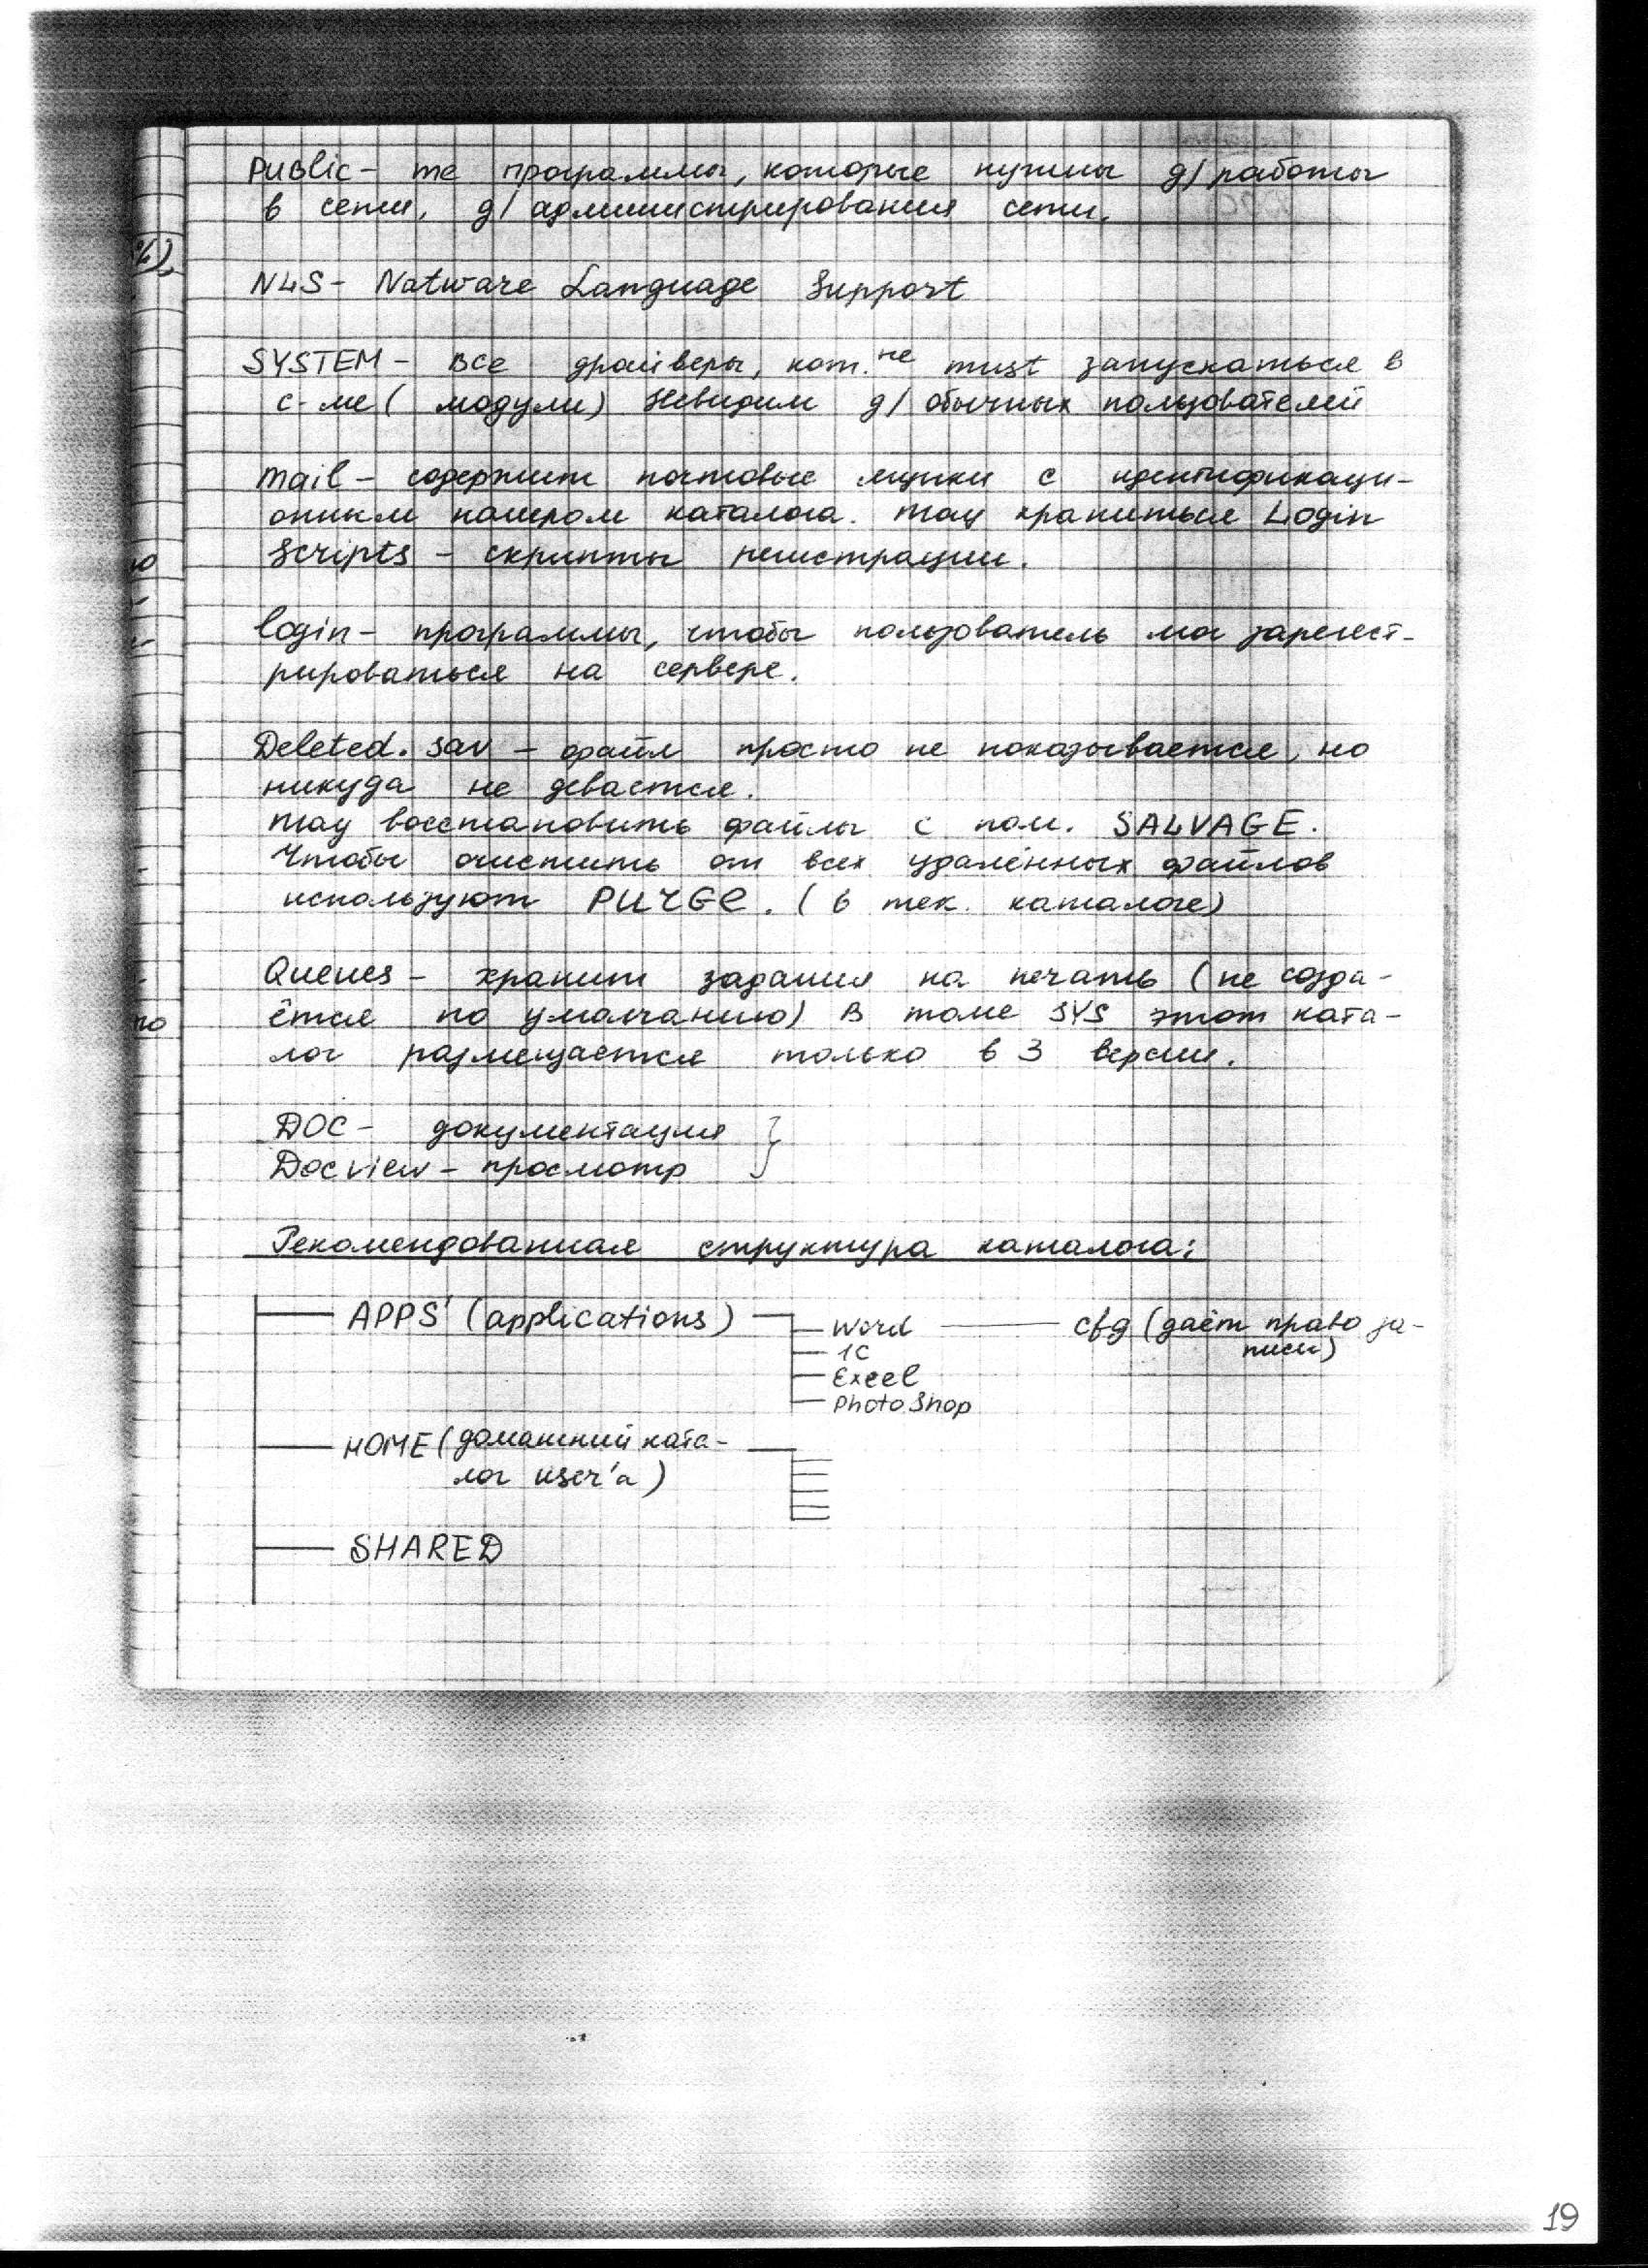 Public - те программы, которые нужны д/ работы
в сети, д/ администрирования сети.
NLS - Netware Language Support
SYSTEM - все драйверы, кот. не must запускаться в
с-ме (модули) Невидим д/ обычных пользователей
mail - содержит почтовые ящики с идентификаци-
онным номером каталога. may храниться Login
Scripts - скрипты регистрации.
login - программы, чтобы пользователь мог зарегист-
рироваться на сервере.
Deleted.sav - файл просто не показывается, но
никуда не девается.
may восстановить файлы с пом. SALVAGE.
Чтобы очистить от всех удалённых файлов
используют PURGE. (в тек. каталоге)
Queues - хранит задания на печать (не созда-
ётся по умолчанию) В томе SYS этот ката-
лог размещается только в 3 версии.
DOC - документация
Docview - просмотр
Рекомендованная структура каталога:
APPS (applications)
Word cfg (даёт право за-
писи)
1C
Excel
PhotoShop
HOME (домашний ката-
лог user'а)
SHARED
19